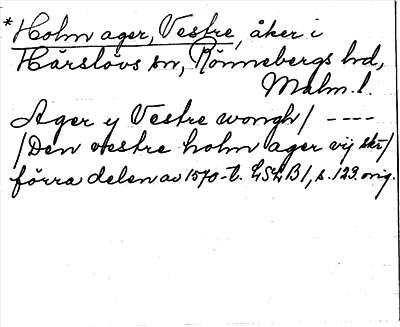 *Holm ager, Vestre, åker i
Hårslövs sn, Rönnebergs hd,
Malm. l.
Ager y Vestre wongh/ ----
/Den vestre holm ager vij skr/
förra delen av 1570-t. LSLB1, s. 123. orig.